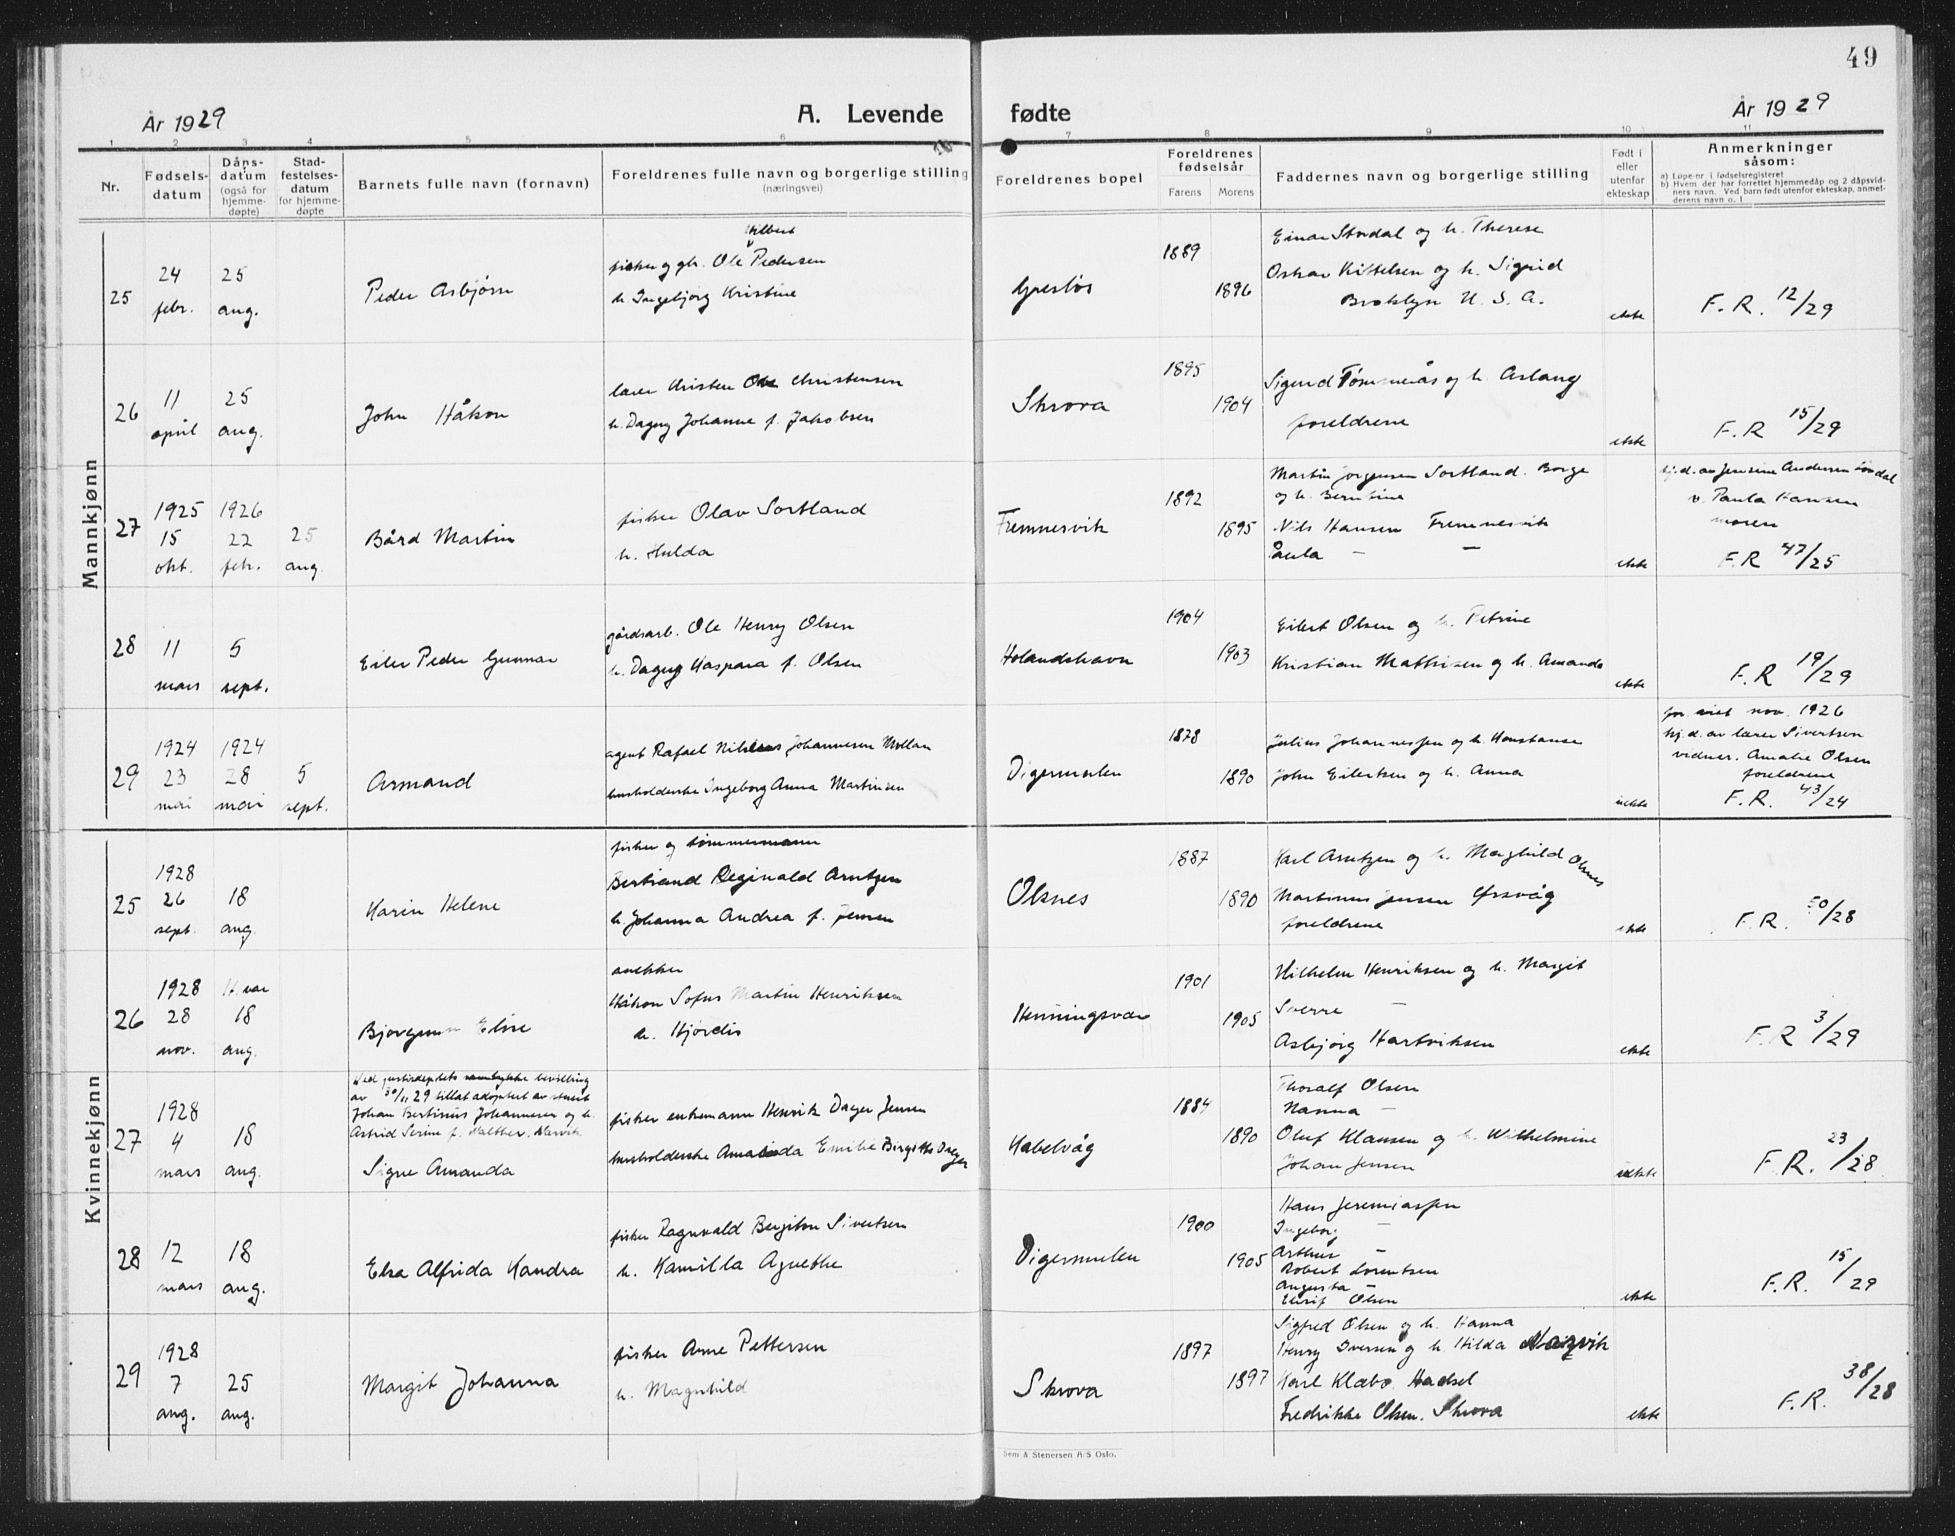 49
År 1929
A. Levende fødte
År 1929
1 2 3 4 5 6 7 8 9 10 11
Nr.
Fødsels-
datum
Dåps-
datum
(også for
hjemme-
døpte)
Stad-
festelses-
datum
for hjemme-
døpte
Barnets fulle navn (fornavn)
Foreldrenes fulle navn og borgerlige stilling
(næringsvei)
Foreldrenes bopel
Foreldrenes
fødselsår
Farens Morens
Faddernes navn og borgerlige stilling
Født i
eller
utenfor
ekteskap
Anmerkninger
såsom:
a) Løpe-nr i fødselsregisteret
b) Hvem der har forrettet hjemmedåp og 2 dåpsvid-
ners navn. Ved barn født utenfor ekteskap, anmel-
derens navn o. l
Mannkjønn
25
24
febr.
25
aug.
Peder Asbjørn
Albert
fisker og gb. Ole Pedersen
h. Ingebjørg Kristine
1889
1896
Einar Stordal og h. Therese
Oskar Kittelsen og h. Sigrid
Brooklyn U. S. A.
ekte
F. R. 12/29
26
11
april
25
aug.
John Håkon
lærer Kristen Ole Christensen
h. Dagny Johanne f. Jakobsen
Skrova
1895
1904
Sigurd Tømmerås og h. Aslaug
foreldrene
ekte
F. R 15/29
27
1925
15
okt.
1926
22
febr.
25
aug.
Bård Martin
fisker Olav Sortland
h. Hulda
Fremnesvik
1892
1895
Martin Jørgensen Sortland. Borge
og h. Berntine
Nils Hansen Fremnesvik
Paula — —
ekte
hj.d. av Jensine Andersen
v. Paula Hansen
moren
F. R 47/25
28
11
mars
5
sept.
Eiler Peder Gunnar
gårdsarb. Ole Henry Olsen
h. Dagny Kaspara f. Olsen
Holandshavn
1904
1903
Eilert Olsen og h. Petrine
Kristian Mathisen og h. Amanda
ekte
F. R 19/29
29
1924
23
mai
1924
28
mai
5
sept.
Armand
agent Rafael Johannesen Mollan
husholderske Ingeborg Anna Martinsen
Digermulen
1878
1890
Julius Johannessen og h. Konstanse
John Eilertsen og h. Anna
uekte
for. viet nov. 1926
hj.d. av lærer Sivertsen
vidner. Amalie Olsen
foreldrene
F. R. 43/24
Kvinnekjønn
25
1928
26
sept.
18
aug.
Karin Helene
fisker og tømmermann
Bertrand Reginald Arntzen
h. Johanna Andrea f. Jensen
Olsnes
1887
1890
Karl Arntzen og h. Maghild Olsnes
Martinus Jensen Ørsvåg
foreldrene
ekte
F. R. 50/28
26
1928
28
nov.
H.vær
18
aug.
Elise
Håkon Sofus Martin Henriksen
h. Hjørdis
Henningsvær
1901
1905
Wilhelm Henriksen og h. Margit
Sverre —
Asbjørg Hartviksen
ekte
F. R 3/29
27
1928
4
mars
18
aug.
Ved justisdeptets bevilling
av 30/11 29 tillat adoptert av
Johan Bertinus Johannesen og h.
Astrid Serine f. Walther. Narvik.
Signe Amanda
fisker enkemann Henrik Dager Jensen
husholderske Amanda Emilie Birgitte Dager
Kabelvåg
1884
1890
Thoralf Olsen
Nanna —
Oluf Klausen og h. Wilhelmine
Johan Jensen
uekte
F. R. 23/28
28
12
mars
18
aug.
Elsa Alfrida Kandra
fisker Ragnvald Bergiton Sivertsen
h. Kamilla Agnethe
Digermulen
1900
1905
Hans Jeremiassen
Ingeborg —
Arthur —
Robert Lorentsen
Augusta —
Olsen
ekte
F. R. 15/29
29
1928
7
aug.
25
aug.
Margit Johanna
fisker Arne Pettersen
h. Magnhild
Skrova
1897
1897
Sigfred Olsen og h. Hanna
Henry Iversen og h. Hilda Narvik
Karl Klæbo. Hadsel
Fredrikke Olsen. Skrova
ekte
F. R. 38/28
Sem & Stenersen A/S Oslo.